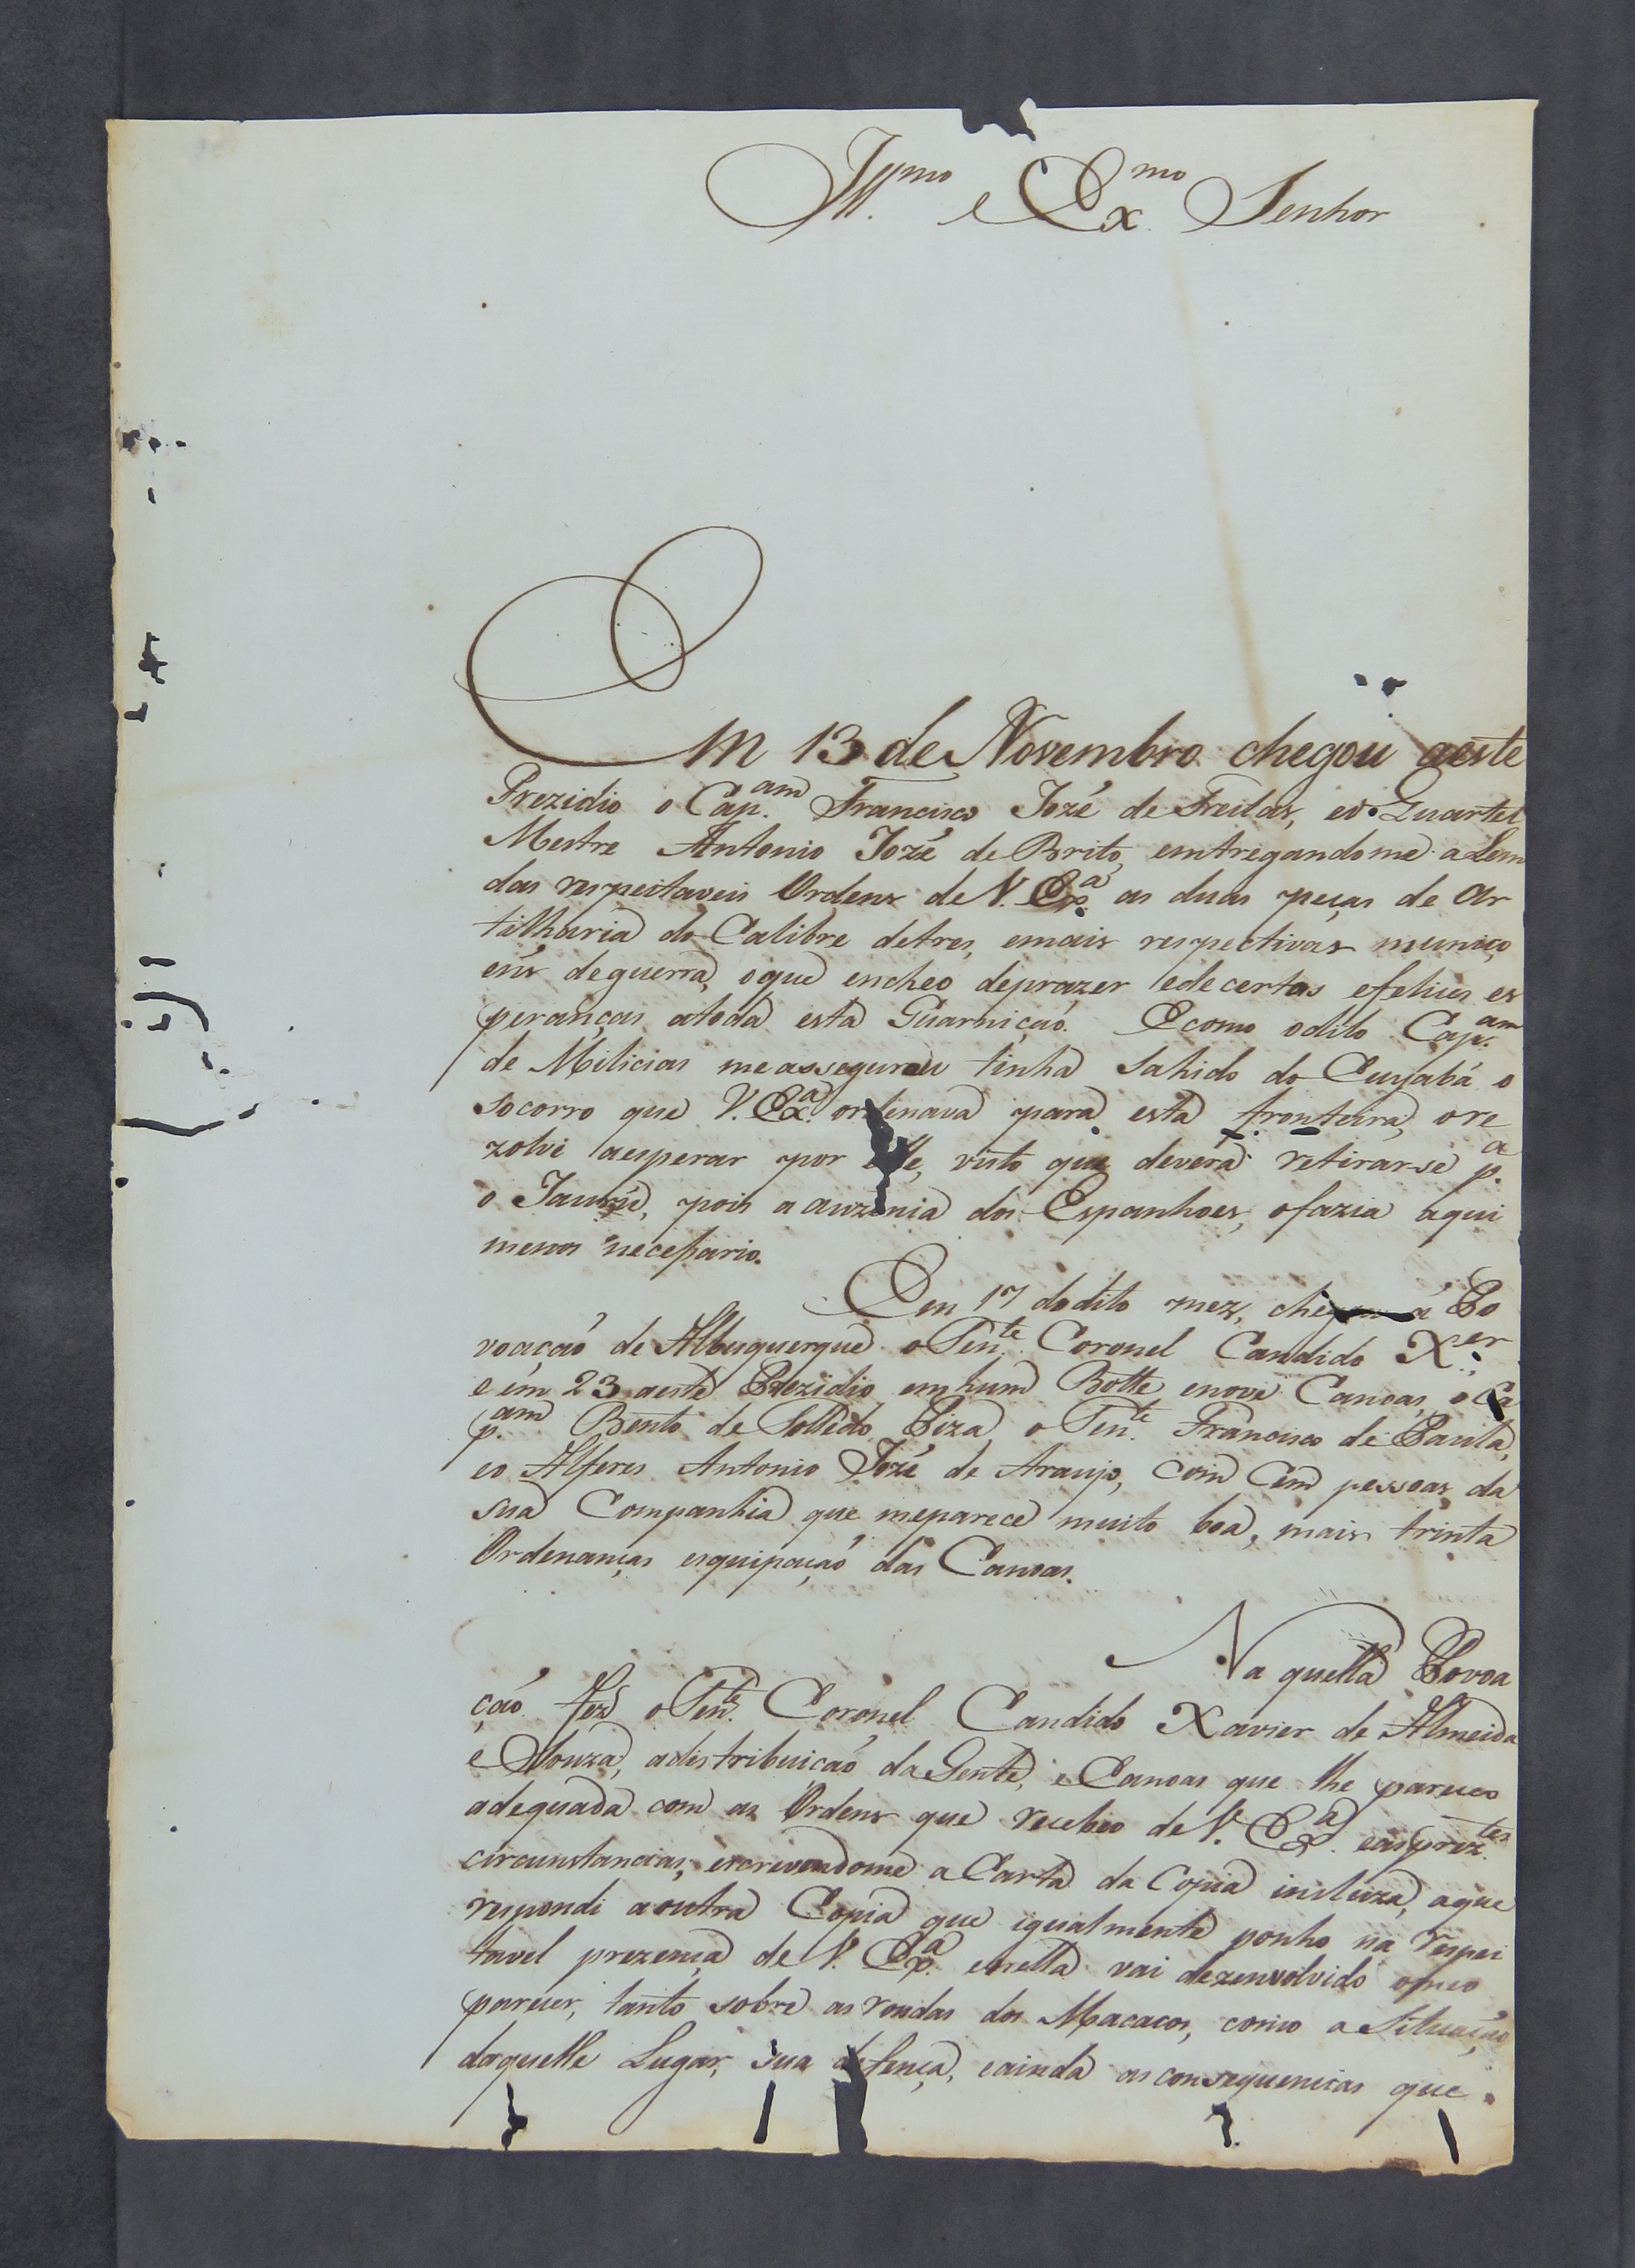 Ill.mo e Ex.mo Senhor
Em 13 de Novembro chegou aeste
Prezidio o Cap.am Francisco Jozé de Freitas, eo Quartel
Mestre Antonio Jozé de Brito, emtregandome alem
das respeitaveis Ordens de V. Ex.a as duas peças de Ar
tilharia do Calibre detres, emais respectivas muniço
ens deguerra, oque encheo deprazer edecertas efelices es
peranças atoda esta Guarniçaõ. Ecomo odito Cap.am
de Milicias meassegurou tinha Sahido do Cuyabá o
socorro que V. Ex.a ordenava para esta fronteira, ore
zolvi aesperar por elle, visto que deverá retirarse p.a
o Jaurú, pois a auzencia dos Espanhoes, ofazia aqui
menos necessario.
Em 17 dodito mez, chegou á Po
voaçaõ de Albuquerque o Ten.te Coronel Candido X.er
e em 23 aeste Prezidio emhum Botte enove Canoas, o Ca
p.am Bento de Tolledo Piza, o Ten.te Francisco de Paula,
eo Alferes Antonio Jozé de Araujo, com Cem pessoas da
sua Companhia que meparece muito boa, mais trinta
Ordenanças esquipaçaõ das Canoas.
Na quella Povoa
çaõ fez o Ten.te Coronel Candido Xavier de Almeida
e Souza, adistribuicaõ da Gente, e Canoas que lhe pareceo
adequada com as Ordens que recebeo de V. Ex.a easprez.tes
circunstancias, escrevendome a Carta da Copia incluza, aque
respondi aoutra Copia que igualmente ponho na respei
tavel prezença de V. Ex.a enella vai dezenvolvido omeo
parecer, tanto sobre as rondas dos Macacos, como a Situaçaõ
daquelle Lugar, sua defença, eainda asconsequencias que